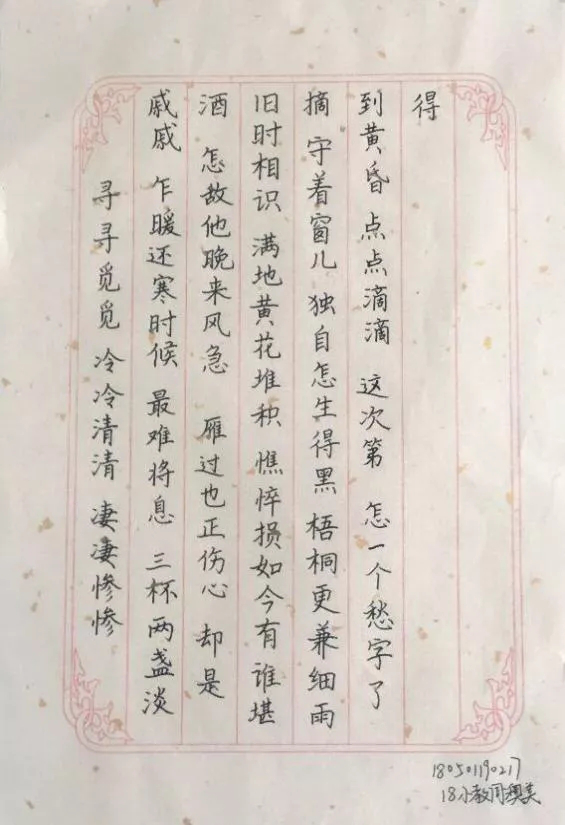 寻寻觅觅 冷冷清清 凄凄惨惨
戚戚 乍暖还寒时候 最难将息 三杯两盏淡
酒 怎敌他晚来风急 雁过也正伤心 却是
旧时相识 满地黄花堆积 憔悴损如今有谁堪
摘 守着窗儿 独自怎生得黑 梧桐更兼细雨
到黄昏 点点滴滴 这次第 怎一个愁字了
得
180501190217
18小教周